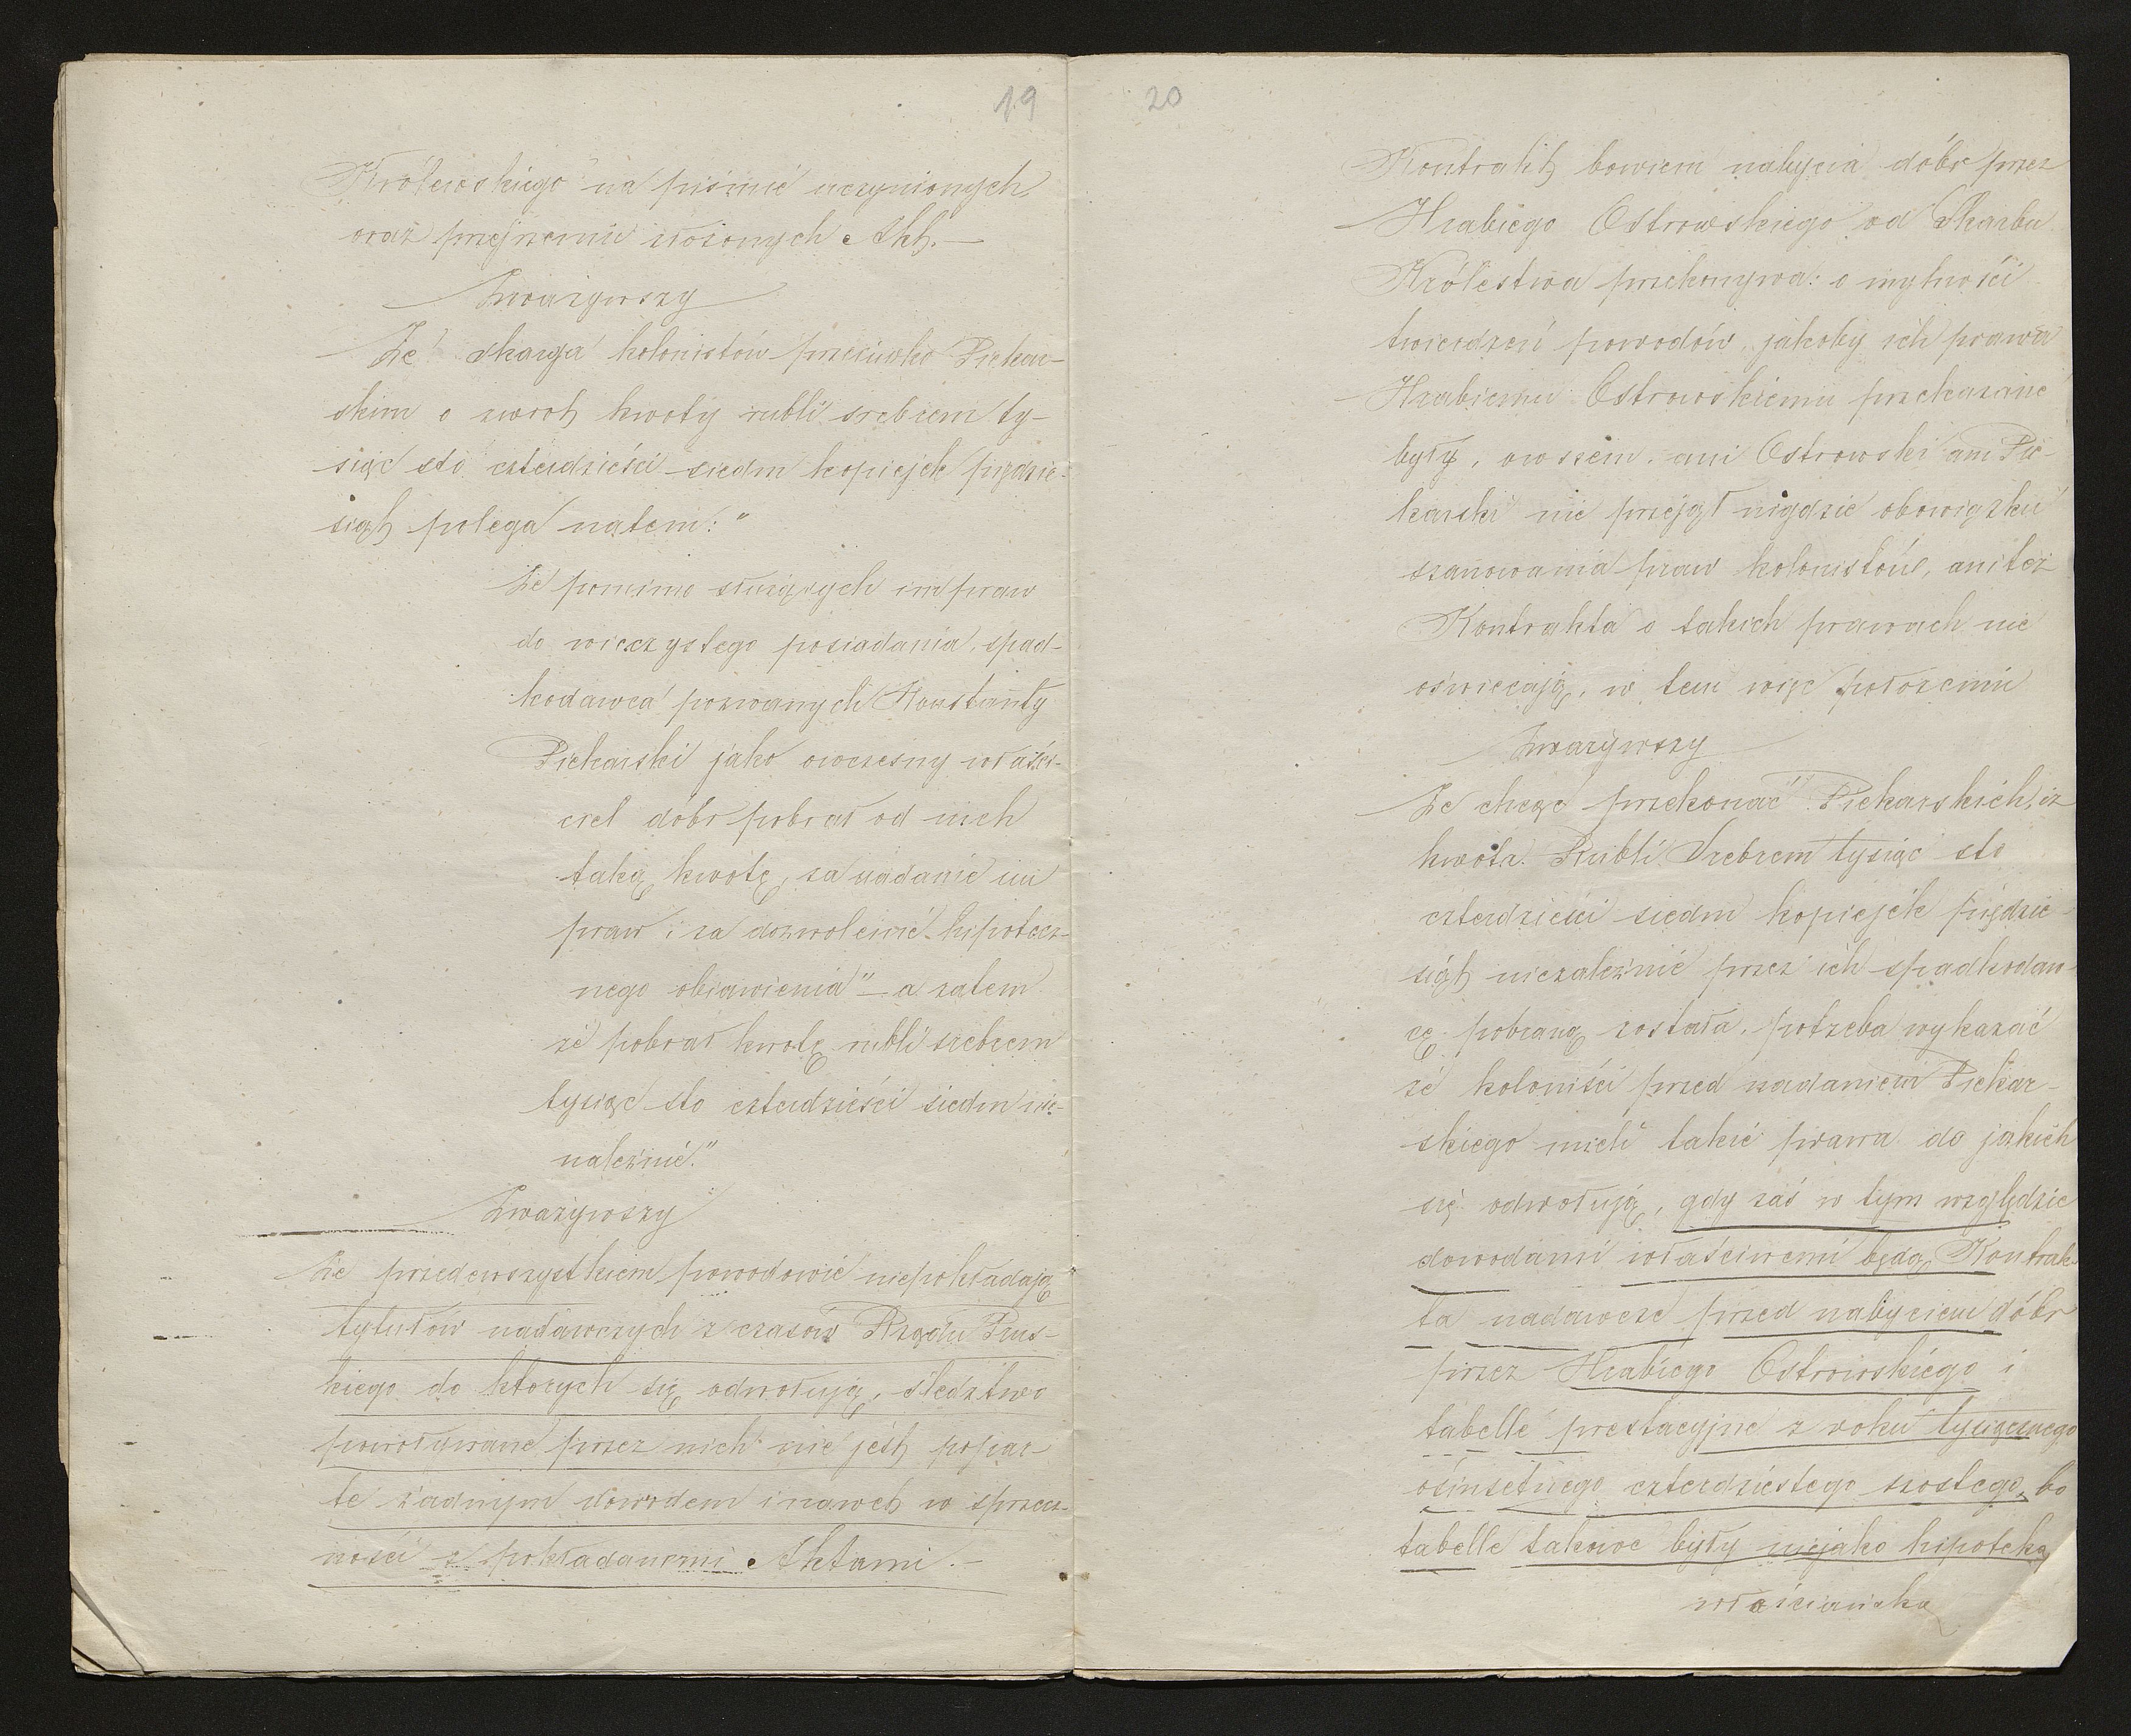 19
Królewskiego na piśmie uczynionych,
oraz przejrzeniu złożonych Akt. —
Zważywszy
Że skarga kolonistów przeciwko Piekar-
skim o zwrot kwoty rubli srebrem ty-
siąc sto czterdzieści siedm kopiejek pięćdzie-
siąt polega natem: "
Że pomimo służących im praw
do wieczystego posiadania, spad-
kodawca pozwanych Konstanty
Piekarski jako owczesny właści-
ciel dóbr pobrał od nich
taką kwotę, za nadanie im
praw i za dozwolenie hipotecz-
nego objawienia" — a zatem
że pobrał kwotę rubli srebrem
tysiąc sto czterdzieści siedm nie-
należnie."
Zważywszy
że przedewszystkiem powodowie niepokładają
tytułów nadawczych z czasów Rządu Prus-
kiego do ktorych się odwołują, śledztwo
powoływane przez nich nie jest popar-
te żadnym dowodem i nawet w sprzecz-
ności z pokładanemi Aktami. —
20
Kontrakt bowiem nabycia dóbr przez
Hrabiego Ostrowskiego od Skarbu
Królestwa przekonywa: o mylności
twierdzeń powodów, jakoby ich prawa
Hrabiemu Ostrowskiemu przekazane
były, owszem, ani Ostrowski ani Pie-
karski nie przejął nigdzie obowiązku
szanowania praw kolonistów, aniteż
Kontrakta o takich prawach nie
oświecają, w tem więc położeniu
Zważywszy
Że chcąc przekonać Piekarskich, iż
kwota Rubli Srebrem tysiąc sto
czterdzieści siedm kopiejek pięćdzie-
siąt nienależnie przez ich spadkodaw-
cę pobraną została, potrzeba wykazać
że koloniści przed nadaniem Piekar-
skiego mieli takie prawa do jakich
się odwołują, gdy zaś w tym względzie
dowodami właściwemi będą Kontrak-
ta nadawcze przed nabyciem dóbr
przez Hrabiego Ostrowskiego i
tabelle prestacyjne z roku tysiącznego
ośmsetnego czterdziestego szostego, bo
tabelle takowe były niejako hipoteką
włościańską